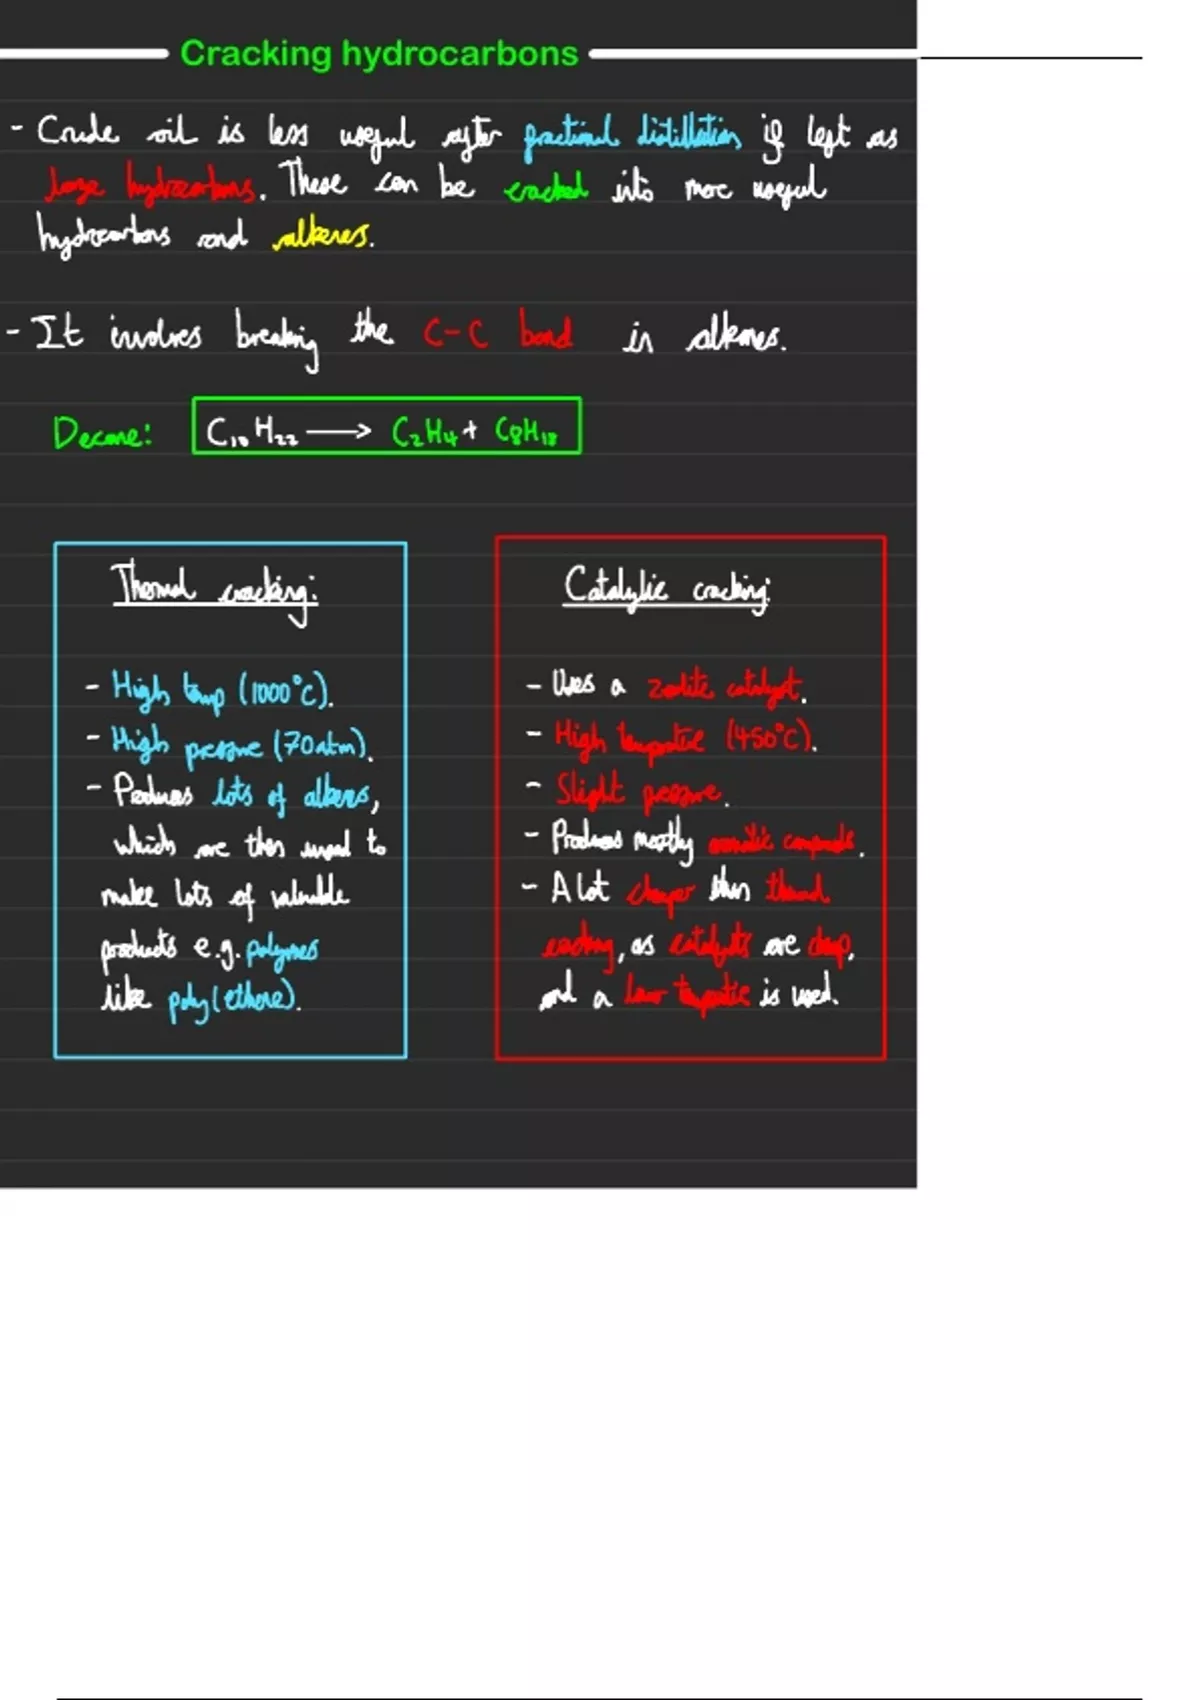 Cracking hydrocarbons
- Crude oil is less useful after fractional distillation if left as
large hydrocarbons. These can be cracked into more useful
hydrocarbons and alkenes.
- It involves breaking the C-C bond in alkanes.
Decane: C₁₀H₂₂ ⟶ C₂H₄ + C₈H₁₈
Thermal cracking:
- High temp (1000°C).
- High pressure (70atm).
- Produces lots of alkenes,
which are then used to
make lots of valuable
products e.g. polymers
like poly(ethene).
Catalytic cracking:
- Uses a zeolite catalyst.
- High temperature (450°C).
- Slight pressure.
- Produces mostly aromatic compounds.
- A lot cheaper than thermal
cracking, as catalysts are cheap,
and a low temperature is used.